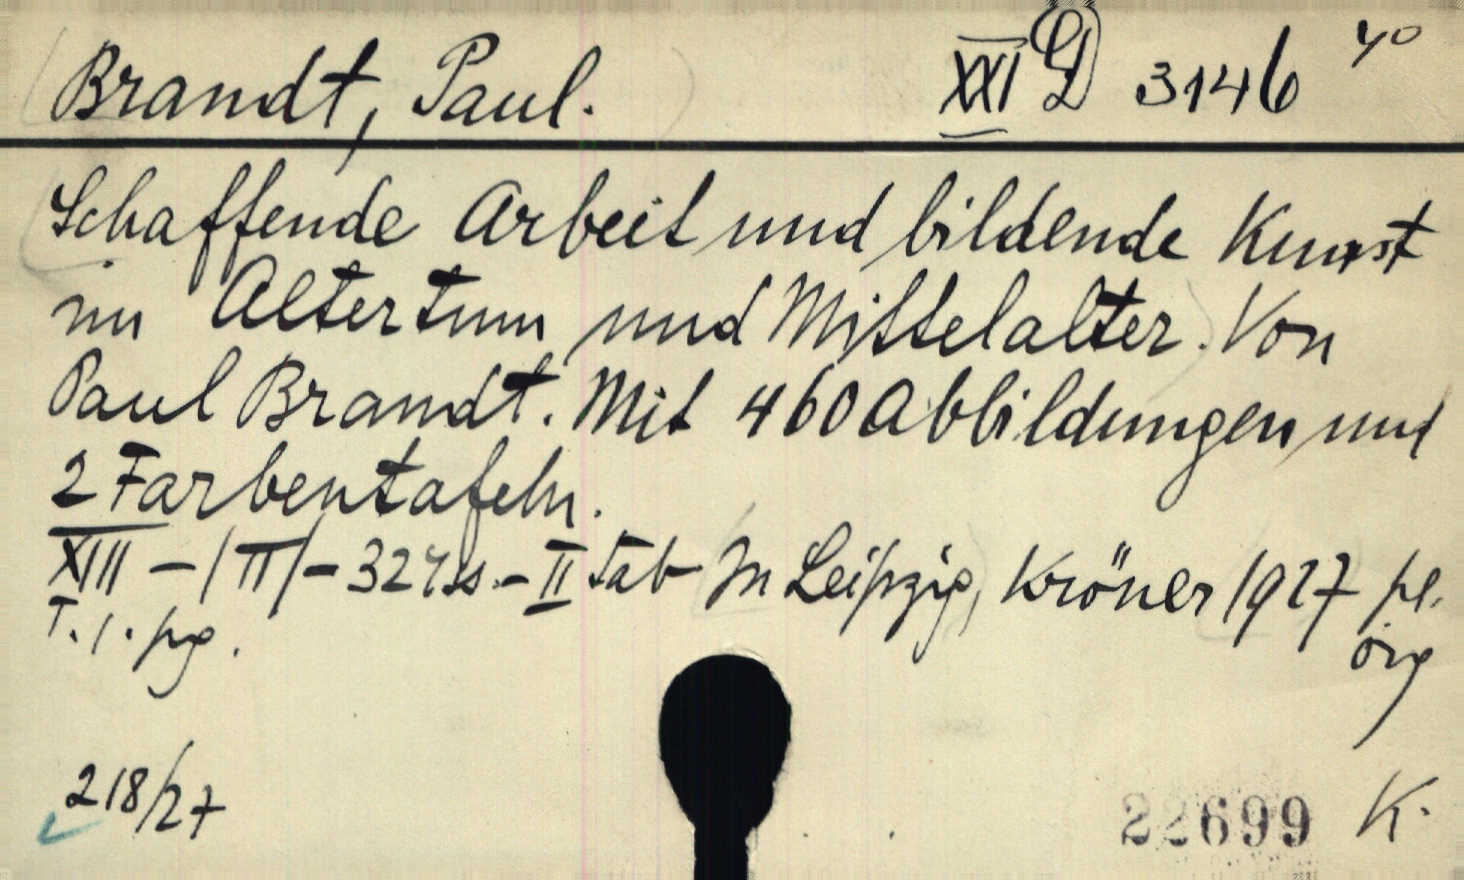 Brandt, Paul. XXI D 3146 4º
Schaffende Arbeit und bildende Kunst
im Altertum und Mittelalter. Von
Paul Brandt. Mit 460 Abbildungen und
2 Farbentafeln.
XIII - | II | - 324 s. - II tab In Leipzig, Kröner 1927 pl.
T. 1. pg. org
218/27
22699 K.